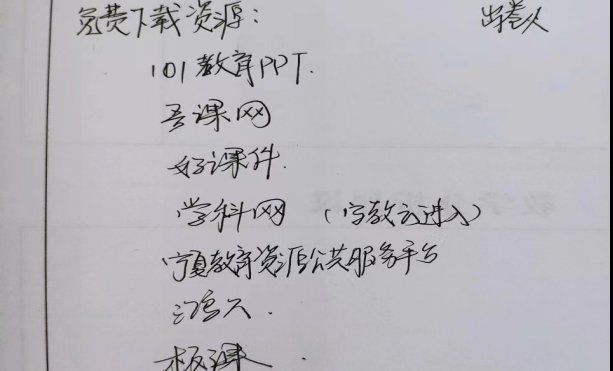 免费下载资源： 出卷人
101教育PPT.
吾课网
好课件.
学科网 （宁教云进入）
宁夏教育资源公共服务平台
板课.